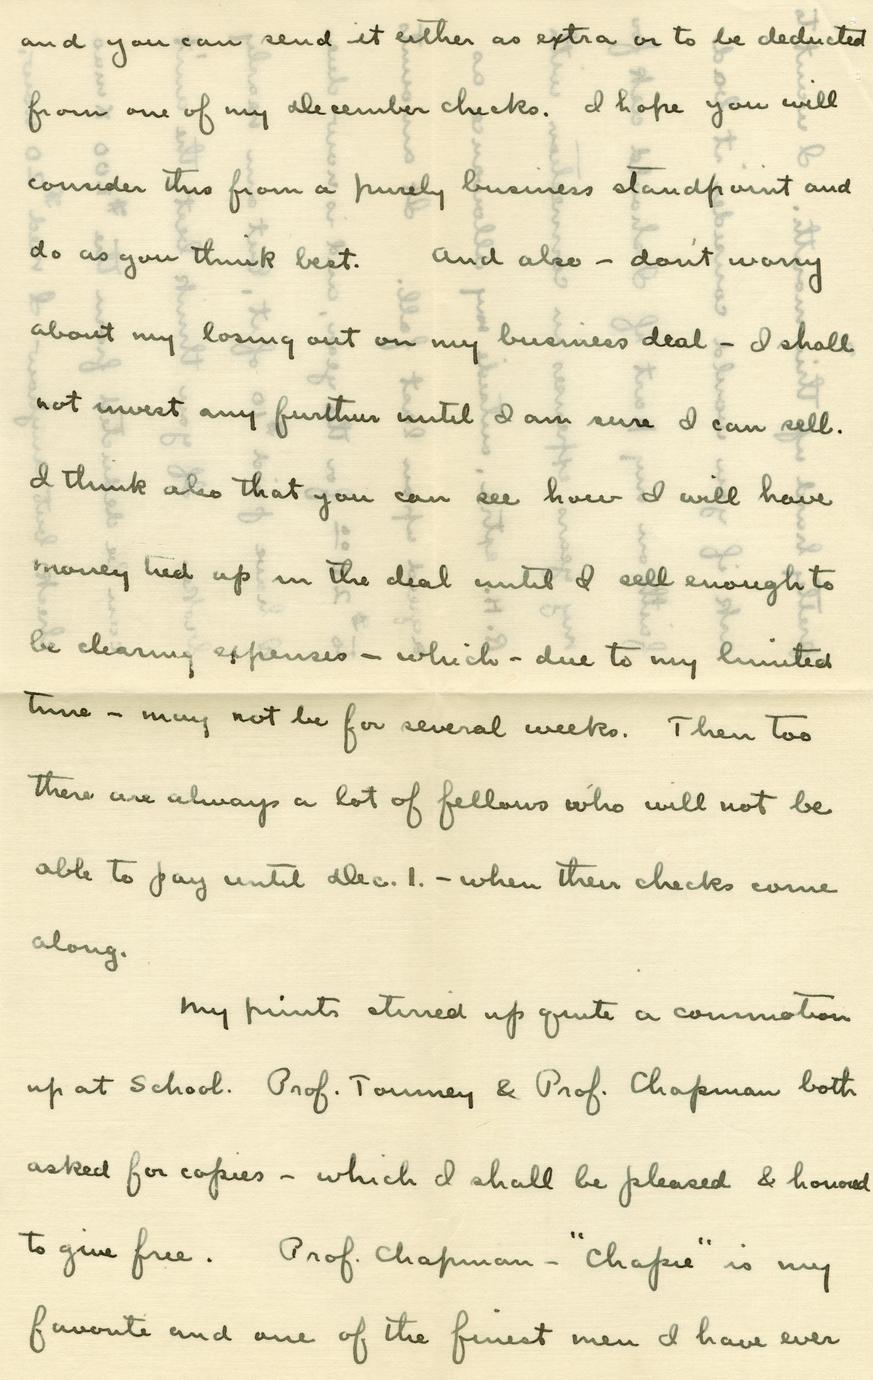 and you can send it either as extra or to be deducted
from one of my December checks. I hope you will
consider this from a purely business standpoint and
do as you think best. And also – don't worry
about my losing out on my business deal – I shall
not invest any further until I am sure I can sell.
I think also that you can see how I will have
money tied up in the deal until I sell enough to
be clearing expenses – which – due to my limited
time – may not be for several weeks. Then too
there are always a lot of fellows who will not be
able to pay until Dec. 1. – when their checks come
along.
My prints stirred up quite a commotion
up at School. Prof. Toumey & Prof. Chapman both
asked for copies – which I shall be pleased & honored
to give free. Prof. Chapman – "Chapie" is my
favorite and one of the finest men I have ever